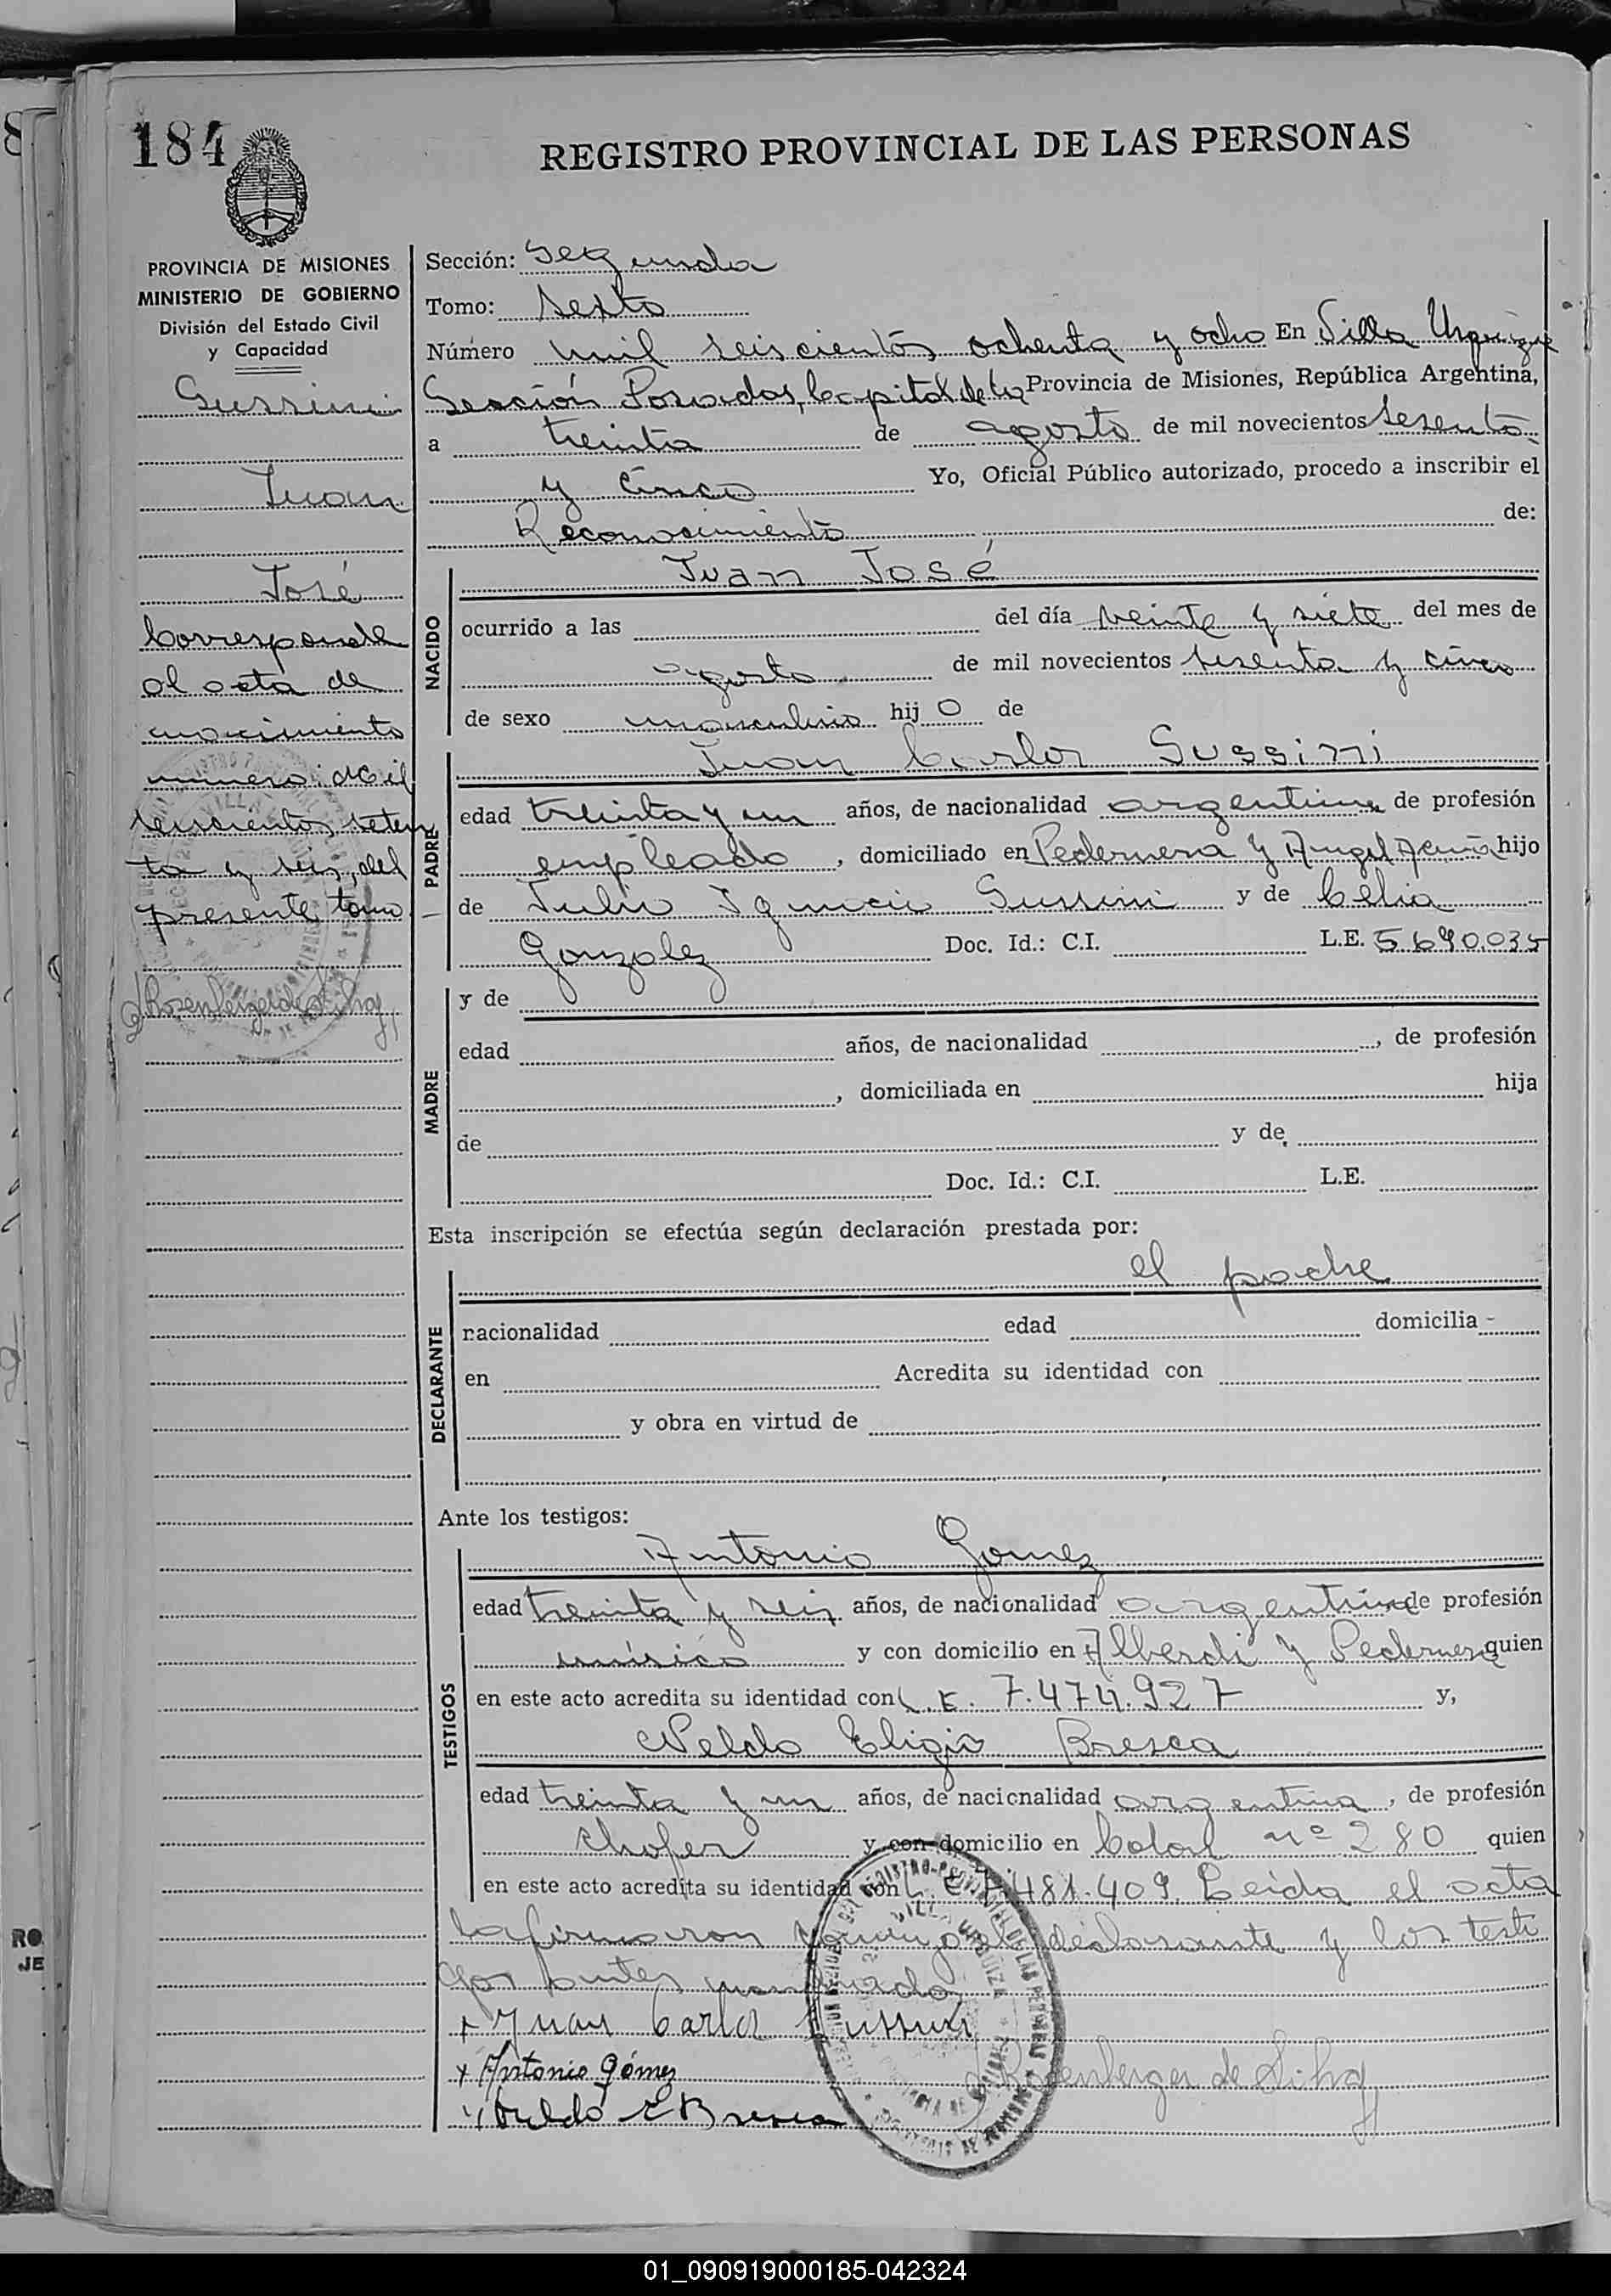 184
REGISTRO PROVINCIAL DE LAS PERSONAS
PROVINCIA DE MISIONES
MINISTERIO DE GOBIERNO
División del Estado Civil
y Capacidad
Sussini
Juan
José
Corresponde
al acta de
nacimiento
numero: Mil
seiscientos seten
ta y seis, del
presente tomo
Sección: Segunda
Tomo: Sexto
Número mil seiscientos ochenta y ocho En Villa Urquiza
Sección Posadas, Capital de la Provincia de Misiones, República Argentina,
a treinta de agosto de mil novecientos sesenta
y cinco Yo, Oficial Público autorizado, procedo a inscribir el
Reconocimiento de:
NACIDO
Juan José
ocurrido a las del día veinte y siete del mes de
agosto de mil novecientos sesenta y cinco
de sexo masculino hijo de
PADRE
Juan Carlos Sussini
edad treinta y un años, de nacionalidad argentina de profesión
empleado, domiciliado en Pedernera y Angel Acuña hijo
de Julio Ignacio Sussini y de Celia
Gonzalez Doc. Id.: C.I. L.E. 5.640.035
MADRE
y de
edad años, de nacionalidad , de profesión
, domiciliada en hija
de y de
Doc. Id.: C.I. L.E.
Esta inscripción se efectúa según declaración prestada por:
DECLARANTE
el padre
nacionalidad edad domicilia-
en Acredita su identidad con
y obra en virtud de
Ante los testigos:
TESTIGOS
Antonio Gomez
edad treinta y seis años, de nacionalidad argentina de profesión
músico y con domicilio en Alberdi y Pedernera quien
en este acto acredita su identidad con L.E. 7.474.927 y,
Neldo Eligio Bresca
edad treinta y un años, de nacionalidad argentina, de profesión
chofer y con domicilio en Colon nº 280 quien
en este acto acredita su identidad con L.E. 7.481.409. Leida el acta
la firmaron el declarante y los testi
gos antes
x Juan Carlos Sussini
x Antonio Gómez
Neldo E Bresca
RO
JE
01_090919000185-042324